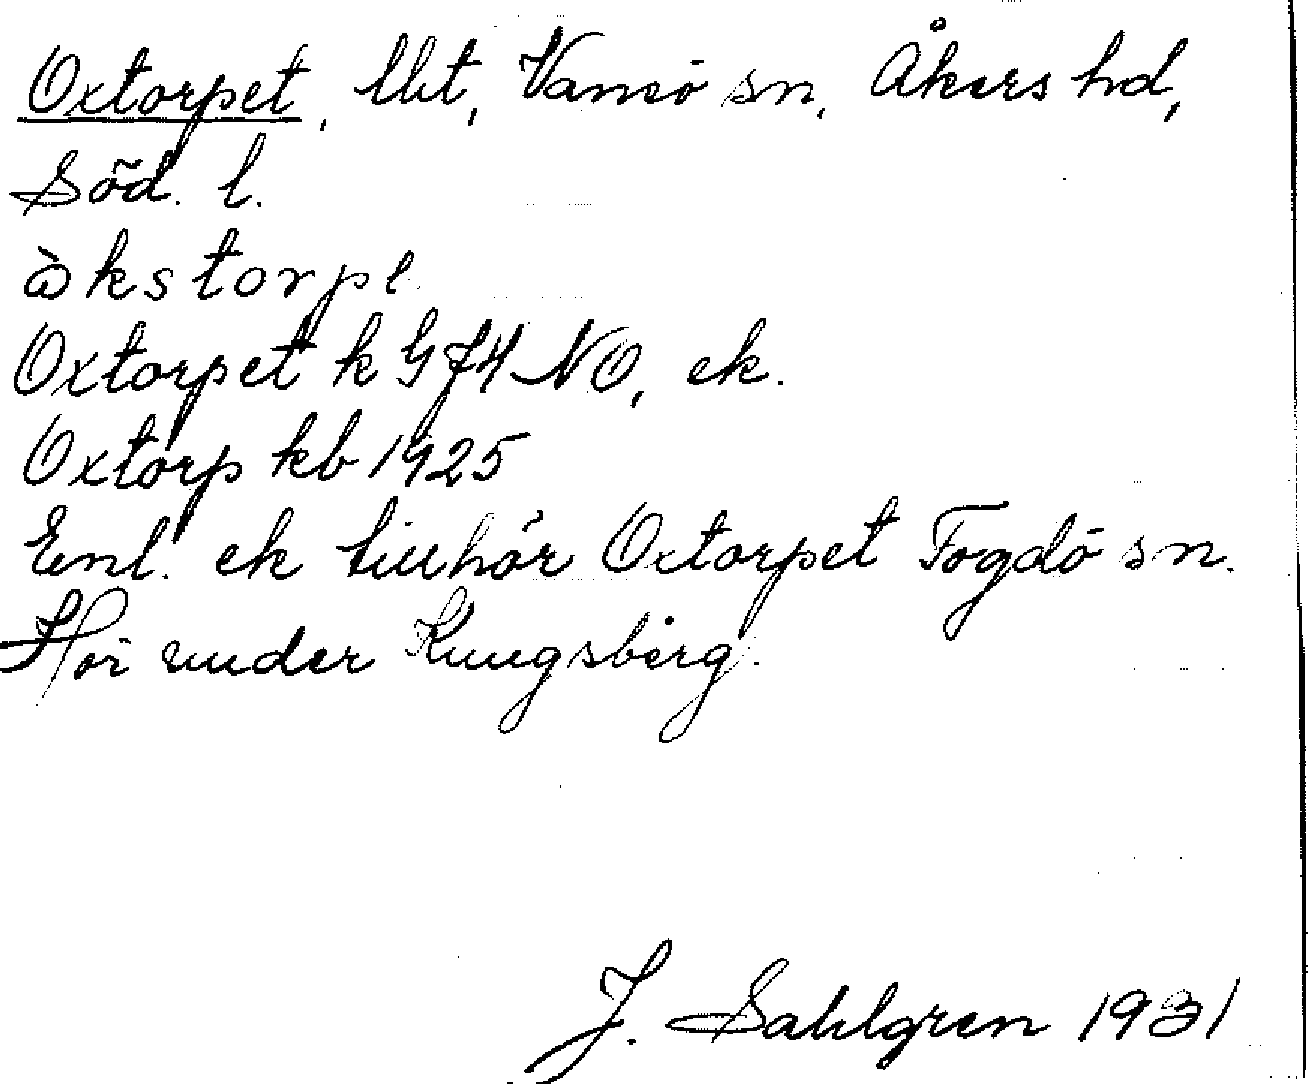 Oxtorpet, lht, Vansö sn, Åkers hd,
Söd. l.
òkstorpe
Oxtorpet k G 74 NO, ek.
Oxtorp kb 1925
Enl. ek tillhör Oxtorpet Fogdö sn.
Hör under Kungsberg.
J. Sahlgren 1931